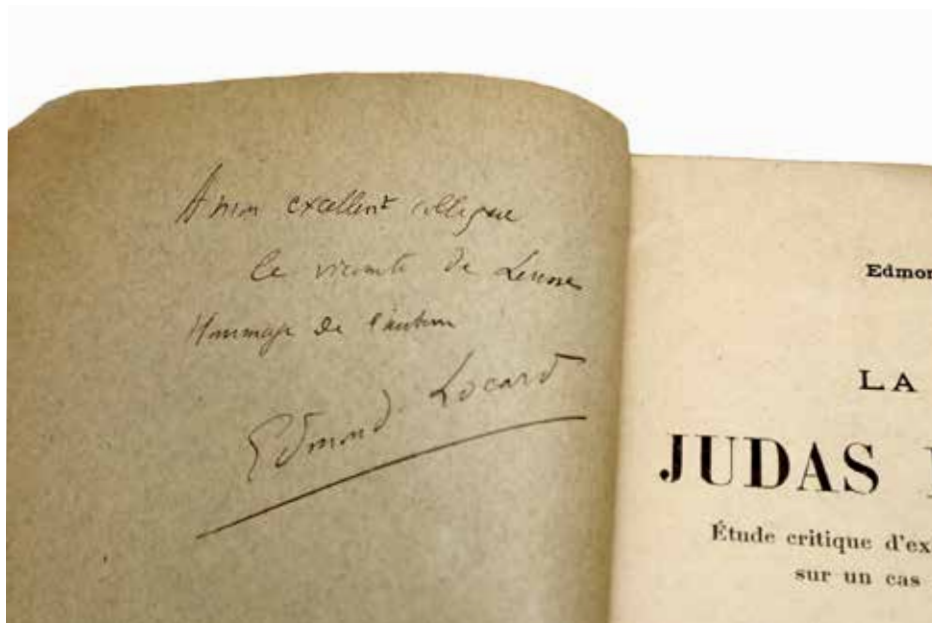 A mon excellent collègue
le vicomte de
Hommage de l'auteur
Edmond Locard
Edmon
LA
JUDAS
Étude critique d'ex
sur un cas